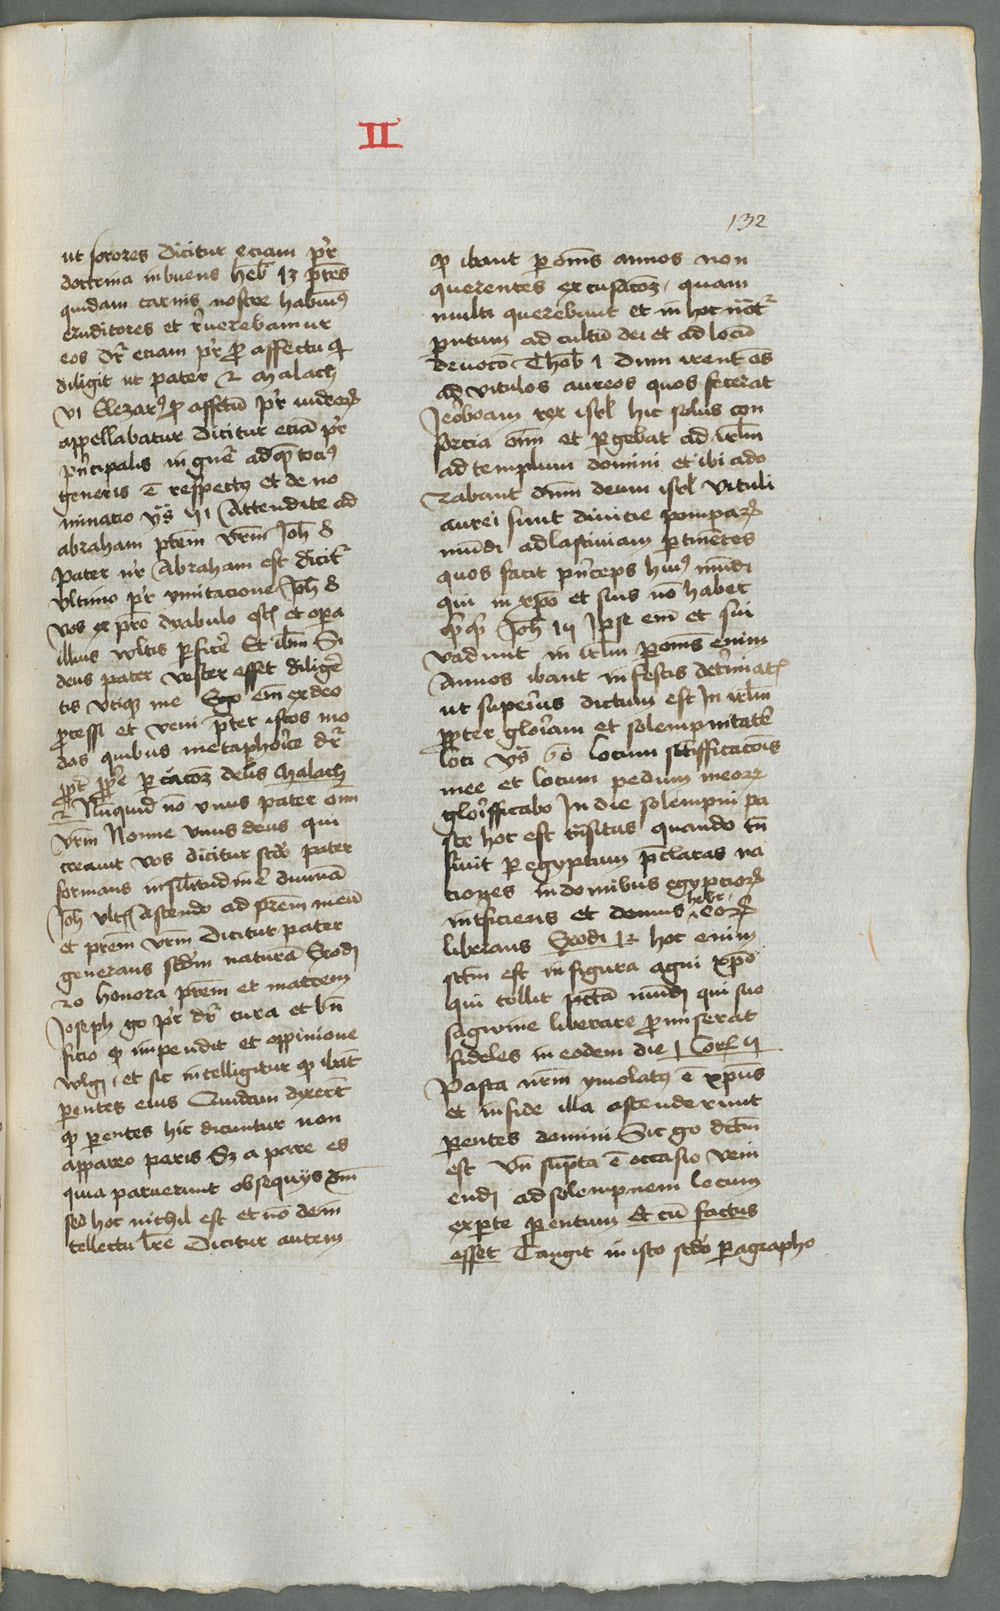 II
132
ut sorores dicitur eciam pr̄
doctrina inbuens heb̄ 13 ptēs
quidam carnis nostre habuimꝰ
eruditores et rēuerebamur
eos dr̄ eciam pr̄ ꝓ affectu
diligit ut pater 2 malach
vi Elezarꝰ ꝓ affectū pr̄ iudeoꝝ
appellabatur dicitur eciā pr̄
pn̄cipalis in gnē̄ tociꝰ
generis ē respectꝰ et de no
minatio ys̄ Attendite ad
abraham ptēm vrm̄ Joh̄ 8
pater nr̄ Abraham est dicitr̄
vltimo pr̄ ymitacione Joh̄ 8
vos ex pre dyabulo estꝭ et opa
illius wltis pficēr Et ibm̄ Si
deus pater vester esset diligē
tis vtiqꝫ me Ego em̄ ex deo
processi et veni prēter istos mo
dos quibus metaphorice dr̄
ꝓpe malach
2 Nūquid nō vnus pater om̄
vrm̄ Nonne vnus deus qui
creauit vos dicitur scdo pater
formans insil̄itudinē diuinā
Joh̄ vltꝭ Ascendo ad prēm meū
et prēm vrm̄ dicitur pater
generans scdm naturā Exodꝭ
20 honora prēm et matrem
Joseph go pr̄ dr̄ cura et bn̄
ficio qꝫ impendit et oppinione
wlgi, et sic intelligitur qꝫ ibāt
parentes eius Quidam dixert̄
qꝫ parentes hic dicuntur non
appareo paris Sꝫ a pareo es
quia paruerunt obsequijs dni
sed hoc nichil est et nō de in
tellectu lr̄e Dicitur autem
qꝫ ibant p om̄s annos non
querentes excusacōꝫ, quam
multi querebant et in hoc not̄r
puntum ad cultū dei et ad locū
deuocōꝭ Thob̄ 1 dum irent oēs
ad vitulos aureos quos fecerat
Jeroboam rex isrl̄ hic solus con
sorcia oīm et pgebat ad irlm̄
ad templum domini et ibi ado
rabant dnm̄ deum isrl̄ vituli
aurei sunt diuitie pompaꝝ
mūdi ad lasciuiam ptinentes
quos facit pn̄ceps huiꝰ mūdi
qui in xp̄o et suis nō habet
qꝫqꝫ Joh̄ Ipse em̄ et sui
vadunt in irlm̄ p om̄s enim
Annos ibant in festis det̄minatꝭ
ut superiꝰ dictum est In irlm̄
ꝓpter gloriam et solempnitatē
loci ys̄ 60 locum sc̄ifficacōis
mee et locum pedum meoꝝ
gloriffacabo In die solempni pa
sce hoc est trn̄situs quando trn̄
siuit p egyptum pclaras na
ciones in domibus egypcioꝝ
intficiens et domus hebr, eoꝝ
liberans Exodi 12 hoc enim
fctm̄ est in figura agni xp̄i
qui tollit pctā mūdi qui suo
sagwine liberare ꝓmiserat
fideles in eodem die 1 Cor̄ 5
Pasca nrm̄ ymolatꝰ ē xp̄us
et in fide illa ascenderunt
parentes domini Sic go dctm̄
est vn̄ supta ē occasio veni
endi ad solempnem locum
ex pte parentum Et cū factus
esset Tangit in isto scdo paragrapho